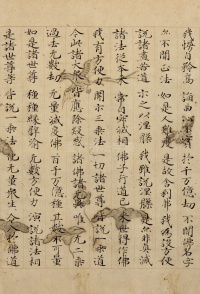 我慢自矜高 諂曲心不實 於千万億劫 不聞佛名字
亦不聞正法 如是人難度 是故舍利弗 我為設方便
說諸盡苦道 示之以涅槃 我雖說涅槃 是亦非真滅
諸法從本來 常自寂滅相 佛子行道已 來世得作佛
我有方便力 開示三乘法 一切諸世尊 皆說一乘道
今此諸大眾 皆應除疑惑 諸佛語无異 唯一无二乘
過去无數劫 无量滅度佛 百千万億種 其數不可量
如是諸世尊 種種緣譬喻 无數方便力 演說諸法相
是諸世尊等 皆說一乘法 化无量眾生 令入於佛道